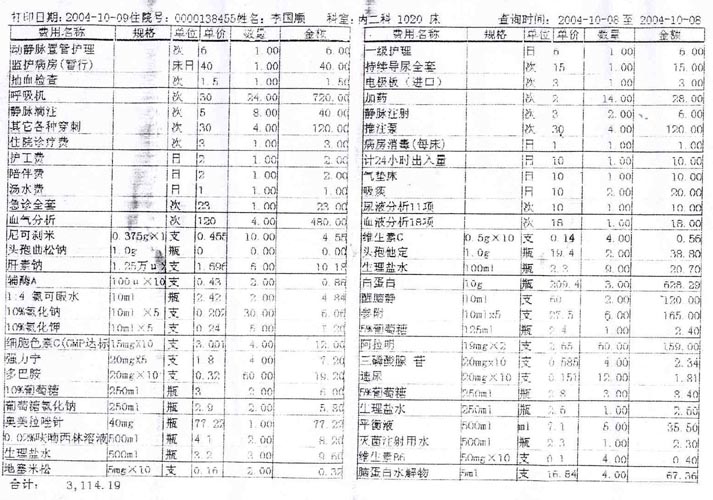 打印日期:2004-10-09住院号:0000138455姓名:李国顺 科室:内二科 1020 床 查询时间: 2004-10-08至 2004-10-08
费用名称 规格 单位 单价 数量 金额
动静脉置管护理 次 6 1.00 6.00
监护病房(暂行) 床日 40 1.00 40.00
抽血检查 次 1.5 1.00 1.50
呼吸机 次 30 24.00 720.00
静脉滴注 次 5 8.00 40.00
其它各种穿刺 次 30 4.00 120.00
住院诊疗费 次 3 1.00 3.00
护工费 日 2 1.00 2.00
陪伴费 日 2 1.00 2.00
汤水费 日 1 1.00 1.00
急诊全套 次 23 1.00 23.00
血气分析 次 120 4.00 480.00
尼可刹米 0.375g×1 支 0.455 10.00 4.55
头孢曲松钠 1.0g 瓶 0 0.00 0.00
肝素钠 1.25万u 支 1.696 6.00 10.18
辅酶A 100u×10 支 0.43 2.00 0.86
1:4 氯可眼水 10ml 瓶 2.42 2.00 4.84
10%氯化钠 10ml ×5 支 0.202 30.00 6.06
10%氯化钾 10ml×5 支 0.24 5.00 1.20
细胞色素C(GMP达标 15mg×10 支 3.001 4.00 12.00
强力宁 20mg×5 支 1.8 4.00 7.20
多巴胺 20mg×10 支 0.32 60.00 19.20
10%葡萄糖 250ml 瓶 3 2.00 6.00
葡萄糖氯化钠 250ml 瓶 2.9 2.00 5.80
奥美拉唑针 40mg 瓶 77.22 1.00 77.22
0.02%呋喃西林溶液 500ml 瓶 4.1 2.00 8.20
生理盐水 500ml 瓶 3.2 3.00 9.60
地塞米松 5mg×10 支 0.16 2.00 0.32
合计: 3,114.19
费用名称 规格 单位 单价 数量 金额
一级护理 日 6 1.00 6.00
持续导尿全套 次 15 1.00 15.00
电极板(进口) 次 3 1.00 3.00
加药 次 2 14.00 28.00
静脉注射 次 3 2.00 6.00
推注泵 次 30 4.00 120.00
病房消毒(每床) 日 1 1.00 1.00
计24小时出入量 日 10 1.00 10.00
气垫床 日 10 1.00 10.00
吸痰 次 10 2.00 20.00
尿液分析11项 次 10 1.00 10.00
血液分析18项 次 18 1.00 18.00
维生素C 0.5g×10 支 0.14 4.00 0.56
头孢他定 1.0g 瓶 19.4 2.00 38.80
生理盐水 100ml 瓶 2.3 9.00 20.70
白蛋白 10g 瓶 209.4 3.00 628.29
醒脑静 10ml 支 60 2.00 120.00
参附 10ml×5 支 27.5 6.00 165.00
5%葡萄糖 125ml 瓶 2.4 1.00 2.40
阿拉明 19mg×2 支 2.65 60.00 159.00
三磷酸腺 苷 20mg×10 支 0.585 4.00 2.34
速尿 20mg×10 支 0.151 12.00 1.81
5%葡萄糖 250ml 瓶 2.8 3.00 8.40
生理盐水 250ml 瓶 2.6 1.00 2.60
平衡液 500ml 瓶 7.1 5.00 35.50
灭菌注射用水 500ml 瓶 2.3 1.00 2.30
维生素B6 50mg×10 支 0.1 4.00 0.40
脑蛋白水解物 5ml 支 16.84 4.00 67.36